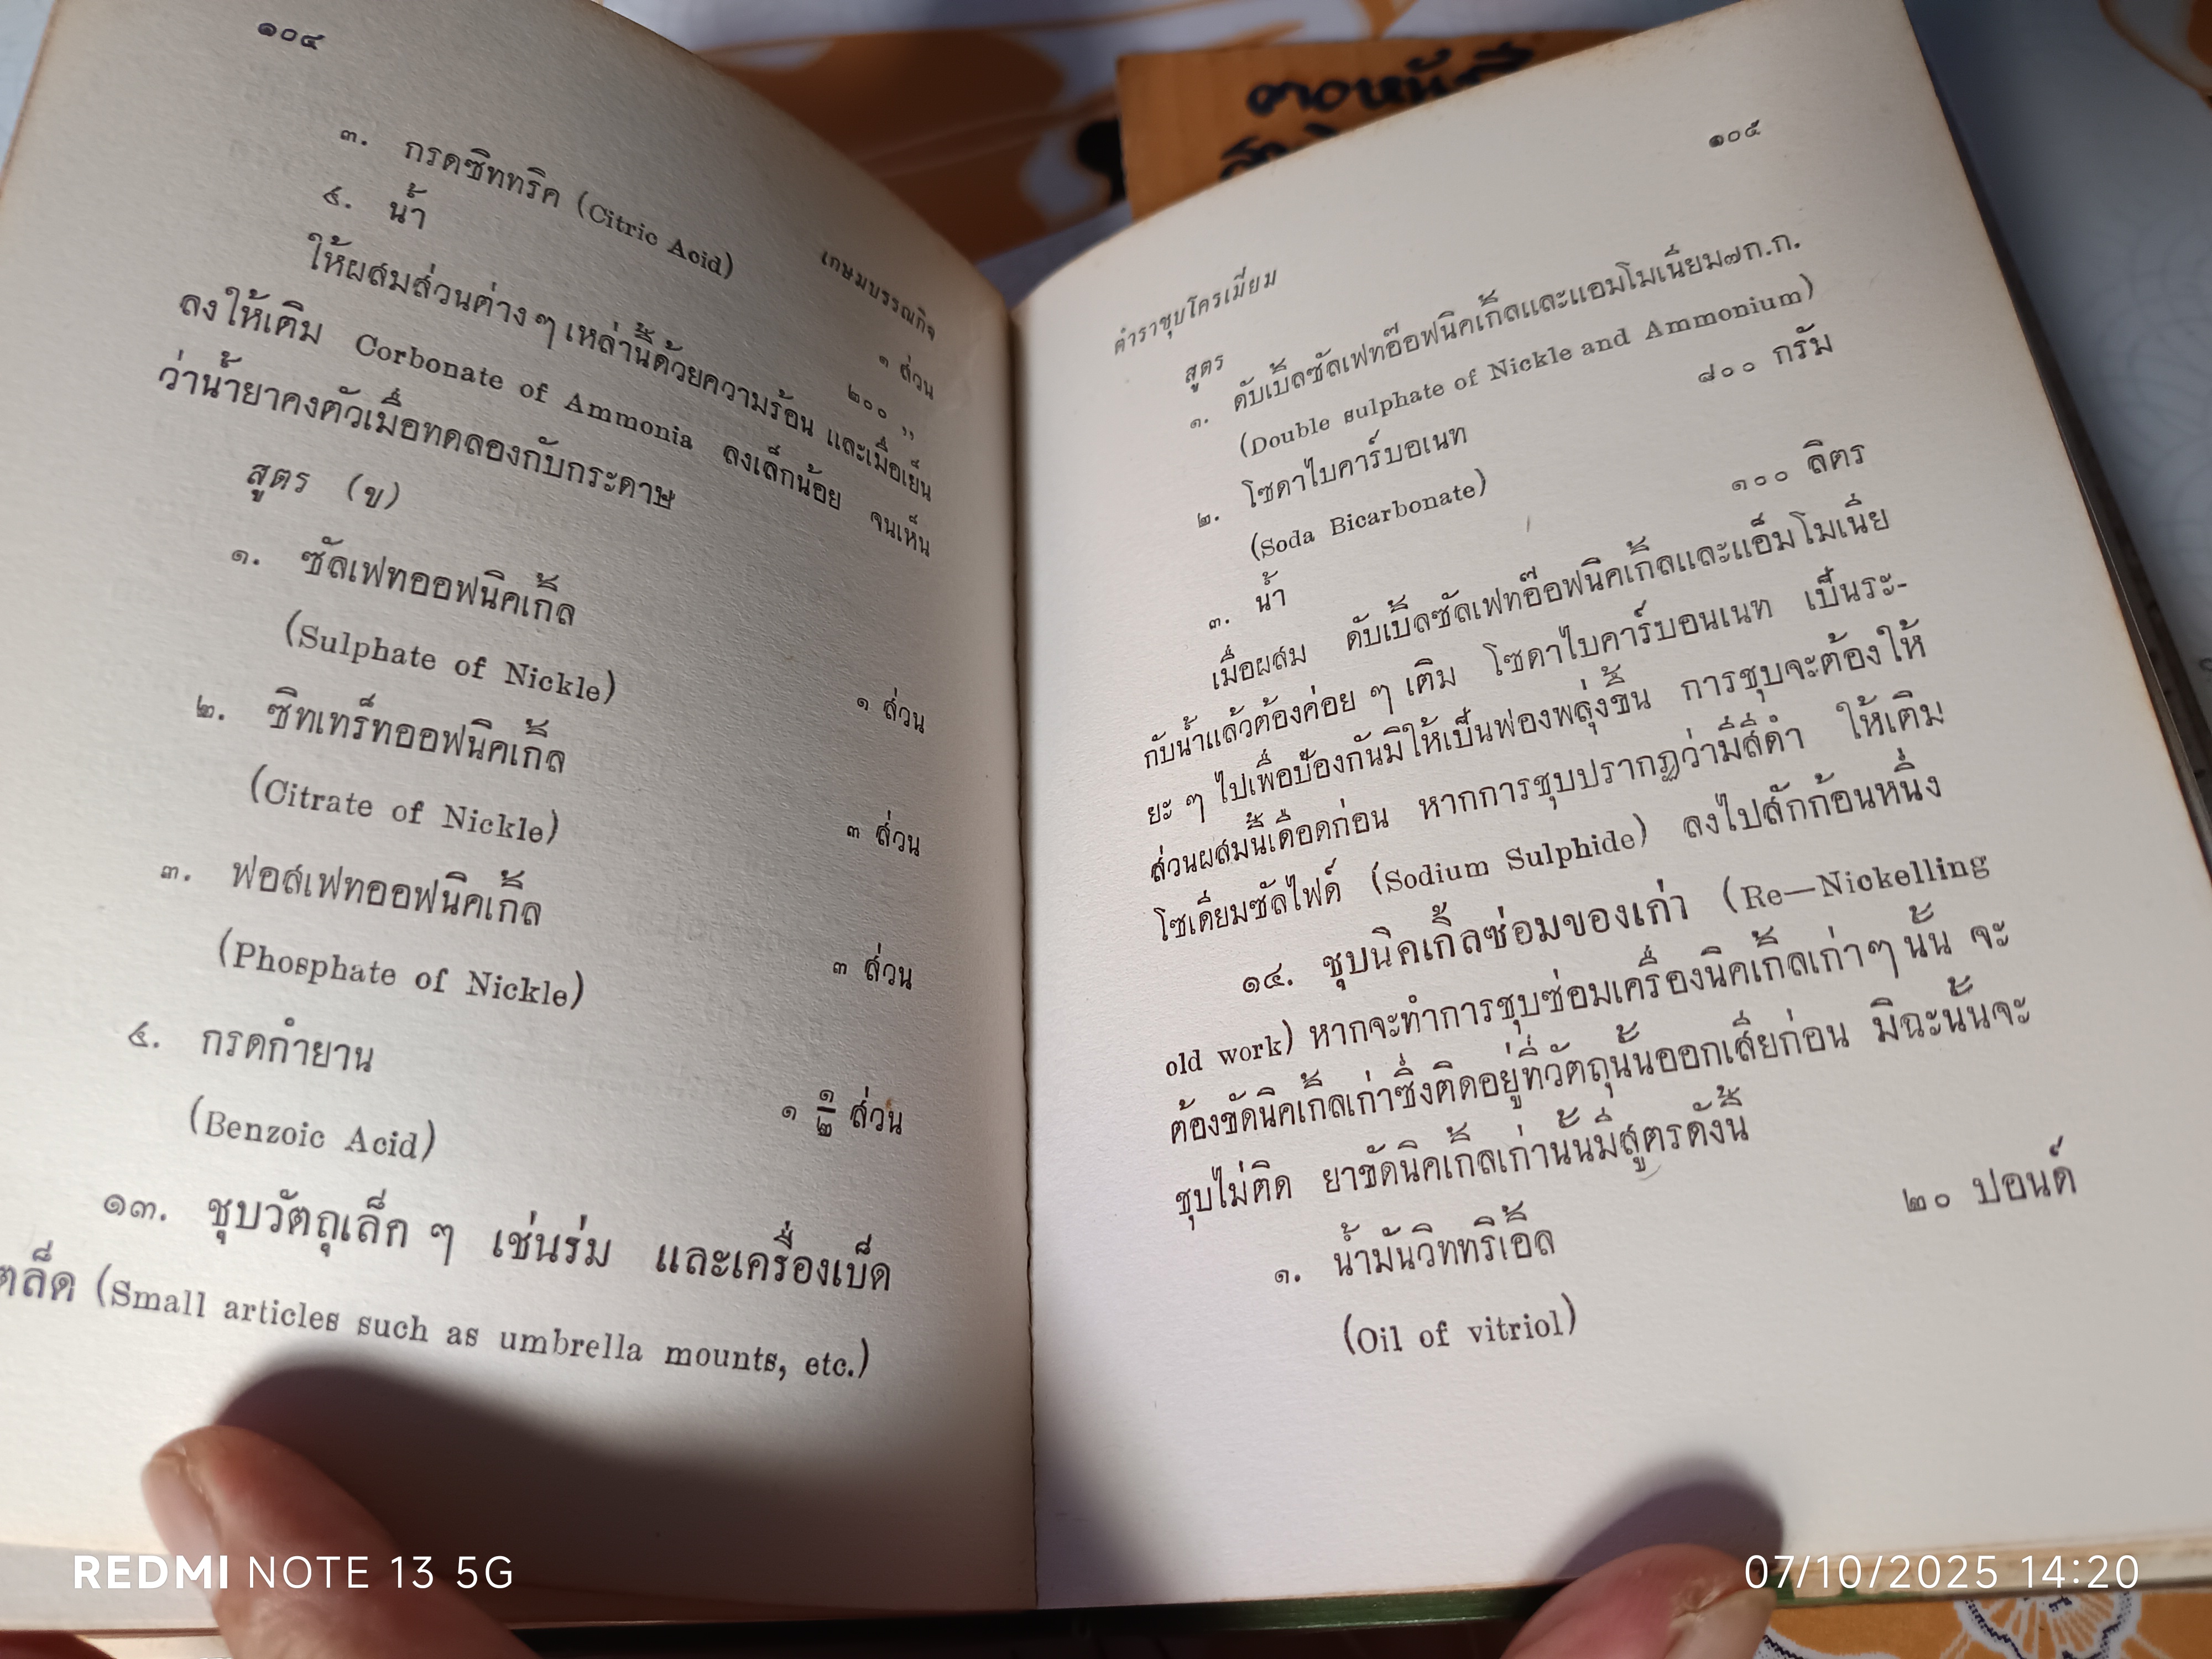 ๑๐๔
เกษมบรรณกิจ
๓. กรดซิททริค (Citric Acid) ๑ ส่วน
๔. น้ำ ๒๐๐ ,,
ให้ผสมส่วนต่าง ๆ เหล่านี้ด้วยความร้อน และเมื่อเย็น
ลงให้เติม Corbonate of Ammonia ลงเล็กน้อย จนเห็น
ว่าน้ำยาคงตัวเมื่อทดลองกับกระดาษ
สูตร (ข)
๑. ซัลเฟทออฟนิคเกิ้ล
(Sulphate of Nickle) ๑ ส่วน
๒. ซิทเทร็ทออฟนิคเกิ้ล
(Citrate of Nickle) ๓ ส่วน
๓. ฟอสเฟทออฟนิคเกิ้ล
(Phosphate of Nickle) ๓ ส่วน
๔. กรดกำยาน
(Benzoic Acid) ๑ ๑/๒ ส่วน
๑๓. ชุบวัตถุเล็ก ๆ เช่นร่ม และเครื่องเบ็ด
ตล็ด (Small articles such as umbrella mounts, etc.)
๑๐๕
ตำราชุบโครเมี่ยม
สูตร
๑. ดับเบิ้ลซัลเฟทอ๊อฟนิคเกิ้ลและแอมโมเนี่ยม๗ก.ก.
(Double sulphate of Nickle and Ammonium)
๒. โซดาไบคาร์บอเนท ๘๐๐ กรัม
(Soda Bicarbonate)
๓. น้ำ ๑๐๐ ลิตร
เมื่อผสม ดับเบิ้ลซัลเฟทอ๊อฟนิคเกิ้ลและแอ็มโมเนี่ย
กับน้ำแล้วต้องค่อย ๆ เติม โซดาไบคาร์บอนเนท เป็นระ-
ยะ ๆ ไปเพื่อป้องกันมิให้เป็นฟองพลุ่งขึ้น การชุบจะต้องให้
ส่วนผสมนี้เดือดก่อน หากการชุบปรากฏว่ามีสีดำ ให้เติม
โซเดี่ยมซัลไฟด์ (Sodium Sulphide) ลงไปสักก้อนหนึ่ง
๑๔. ชุบนิคเกิ้ลซ่อมของเก่า (Re—Nickelling
old work) หากจะทำการชุบซ่อมเครื่องนิคเกิ้ลเก่าๆ นั้น จะ
ต้องขัดนิคเกิ้ลเก่าซึ่งติดอยู่ที่วัตถุนั้นออกเสียก่อน มิฉะนั้นจะ
ชุบไม่ติด ยาขัดนิคเกิ้ลเก่านั้นมีสูตรดังนี้
๑. น้ำมันวิททริเอ็ล ๒๐ ปอนด์
(Oil of vitriol)
REDMI NOTE 13 5G
07/10/2025 14:20